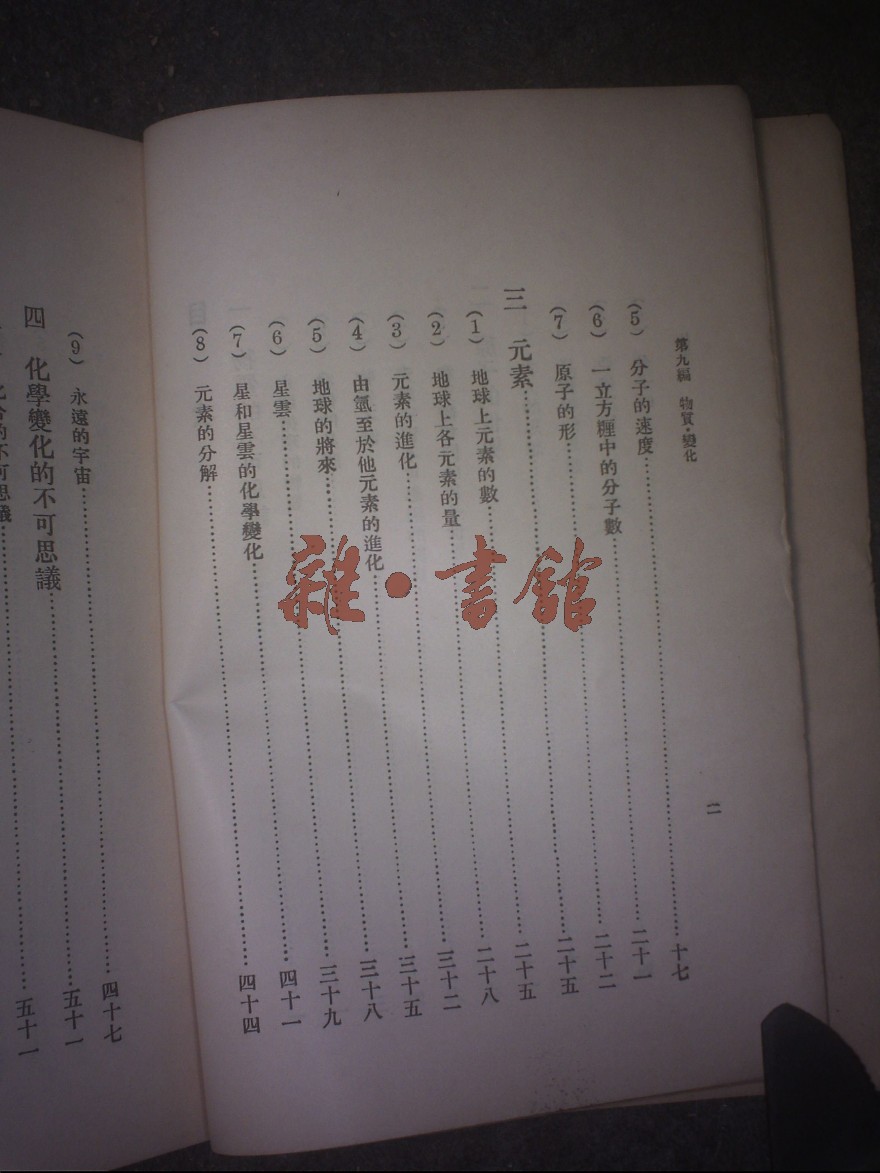 第九編 物質·變化
二
(5) 分子的速度……十七
(6) 一立方糎中的分子數……二十一
(7) 原子的形……二十二
三 元素……二十五
(1) 地球上元素的數……二十五
(2) 地球上各元素的量……二十八
(3) 元素的進化……三十二
(4) 由氫至於他元素的進化……三十五
(5) 地球的將來……三十八
(6) 星雲……三十九
(7) 星和星雲的化學變化……四十一
(8) 元素的分解……四十四
(9) 永遠的宇宙……四十七
四 化學變化的不可思議……五十一
的不可思議……五十一
雜·書館